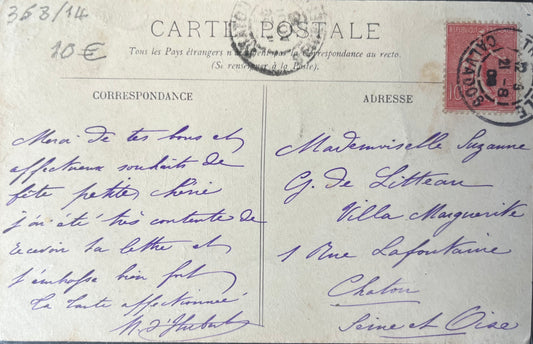 368/14
10 €
CARTE POSTALE
Tous les Pays étrangers n'acceptent pas la Correspondance au recto.
(Se renseigner à la Poste).
CORRESPONDANCE
Merci de tes bons et
affectueux souhaits de
fête petite chérie
j'ai été très contente de
recevoir ta lettre et
t'embrasse bien fort
Ta tante affectionnée
M. d'Hubert
ADRESSE
Mademoiselle Suzanne
G. de Litteau
Villa Marguerite
1 Rue Lafontaine
Chatou
Seine et Oise
CALVADOS
21-8
10